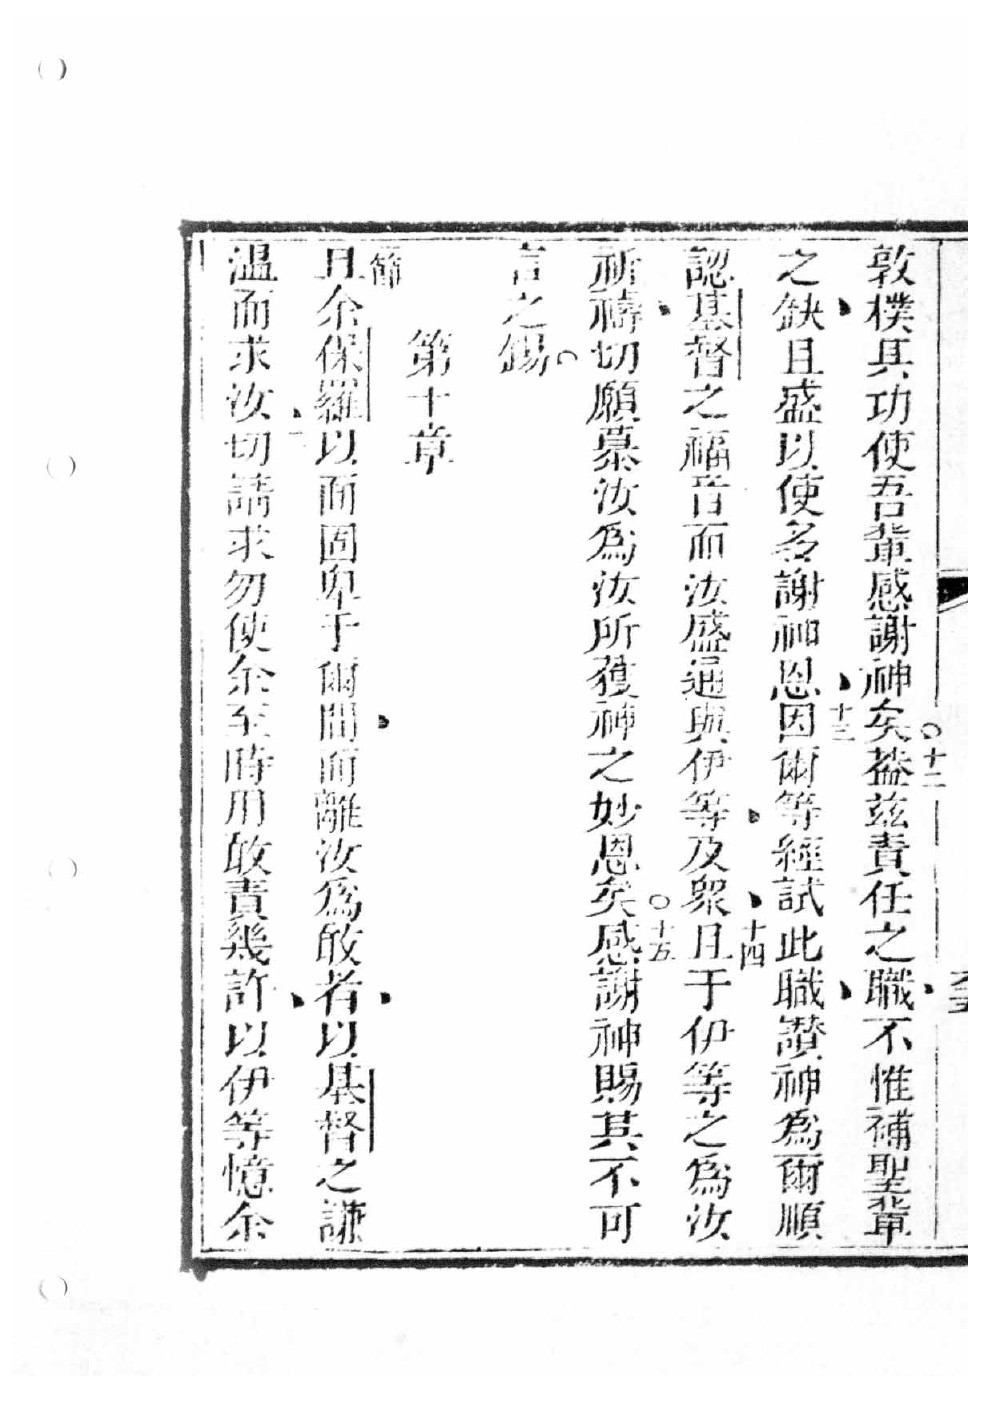 敦樸其功使吾輩感謝神矣○十二蓋茲責任之職不惟補聖輩
之缺且盛以使多謝神恩十三因爾等經試此職讚神為爾順
認基督之福音而汝盛通與伊等及眾十四且于伊等之為汝
祈禱切願慕汝為汝所獲神之妙恩矣○十五感謝神賜其不可
言之錫○
第十章
節
一
且余保羅以面固卑于爾間而離汝為敢者以基督之謙
二
溫而求汝切請求勿使余至時用敢責幾許以伊等憶余